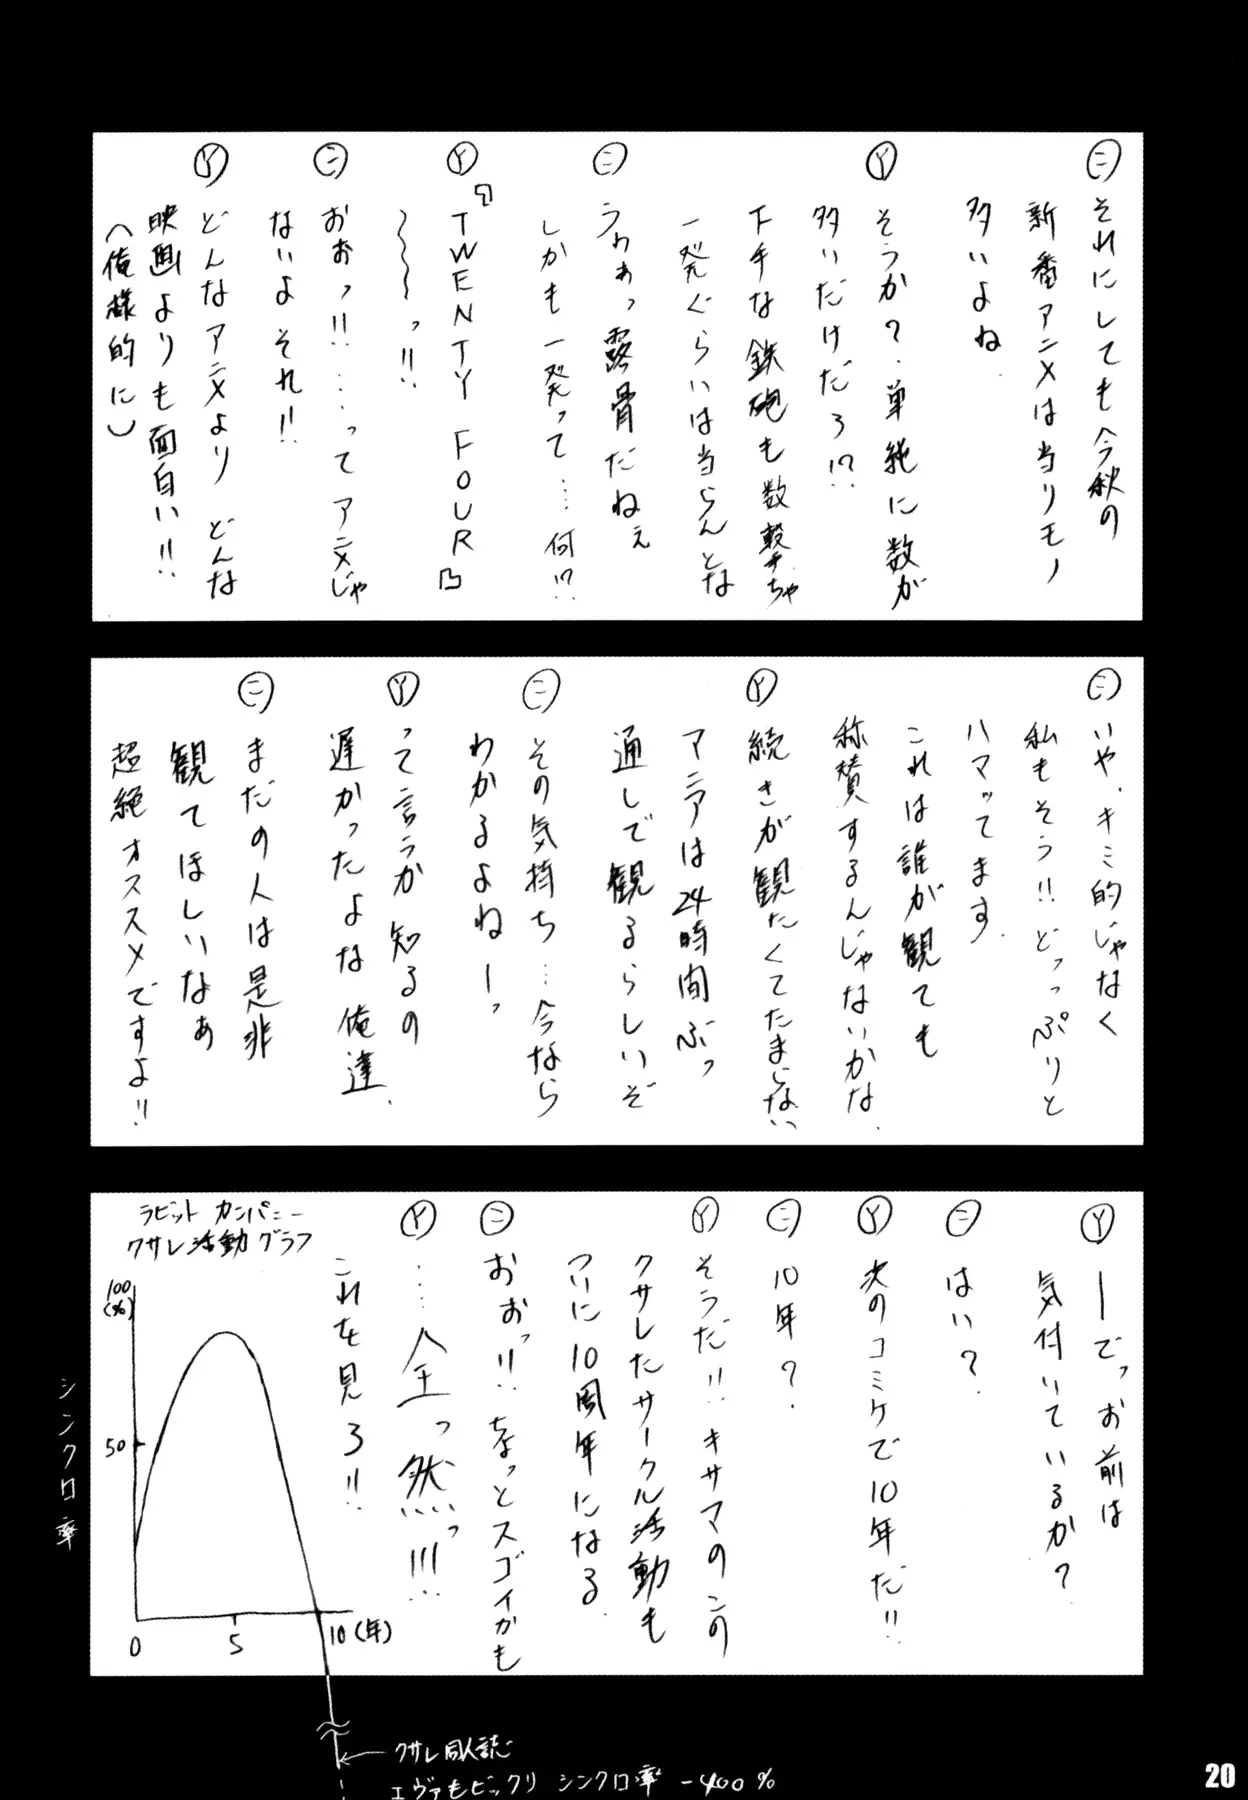 ㊁それにしても今秋の
新番アニメは当りモノ
多いよね.
Ⓨそうか?.単純に数が
多いだけだろ!?
下手な鉄砲も数撃ちゃ
一発ぐらいは当らんとな
㊁うわぁっ露骨だねぇ
しかも一発って…何!?
Ⓨ『TWENTY FOUR』
〜〜〜っ!!
㊁おぉっ!!…ってアニメじゃ
ないよそれ!!
Ⓨどんなアニメより どんな
映画よりも面白い!!
(俺様的に)
㊁いや、キミ的じゃなく
私もそう!!どっっぷりと
ハマってます.
これは誰が観ても
称賛するんじゃないかな.
Ⓨ続きが観たくてたまらない
マニアは24時間ぶっ
通しで観るらしいぞ
㊁その気持ち…今なら
わかるよねーっ
Ⓨって言うか知るの
遅かったよな俺達.
㊁まだの人は是非
観てほしいなぁ
超絶オススメですよ!!
Ⓨーでっお前は
気付いているか?
㊁はい?
Ⓨ次のコミケで10年だ!!
㊁10年?
Ⓨそうだ!!キサマのこの
クサレたサークル活動も
ついに10周年になる
㊁おぉっ!!ちょっとスゴイかも
Ⓨ……全っ然っ!!!
これを見ろ!!
ラビットカンパニー
クサレ活動グラフ
100
(%)
50
シンクロ率
0 5 10(年)
クサレ同人誌
エヴァもビックリ シンクロ率 -400%
20